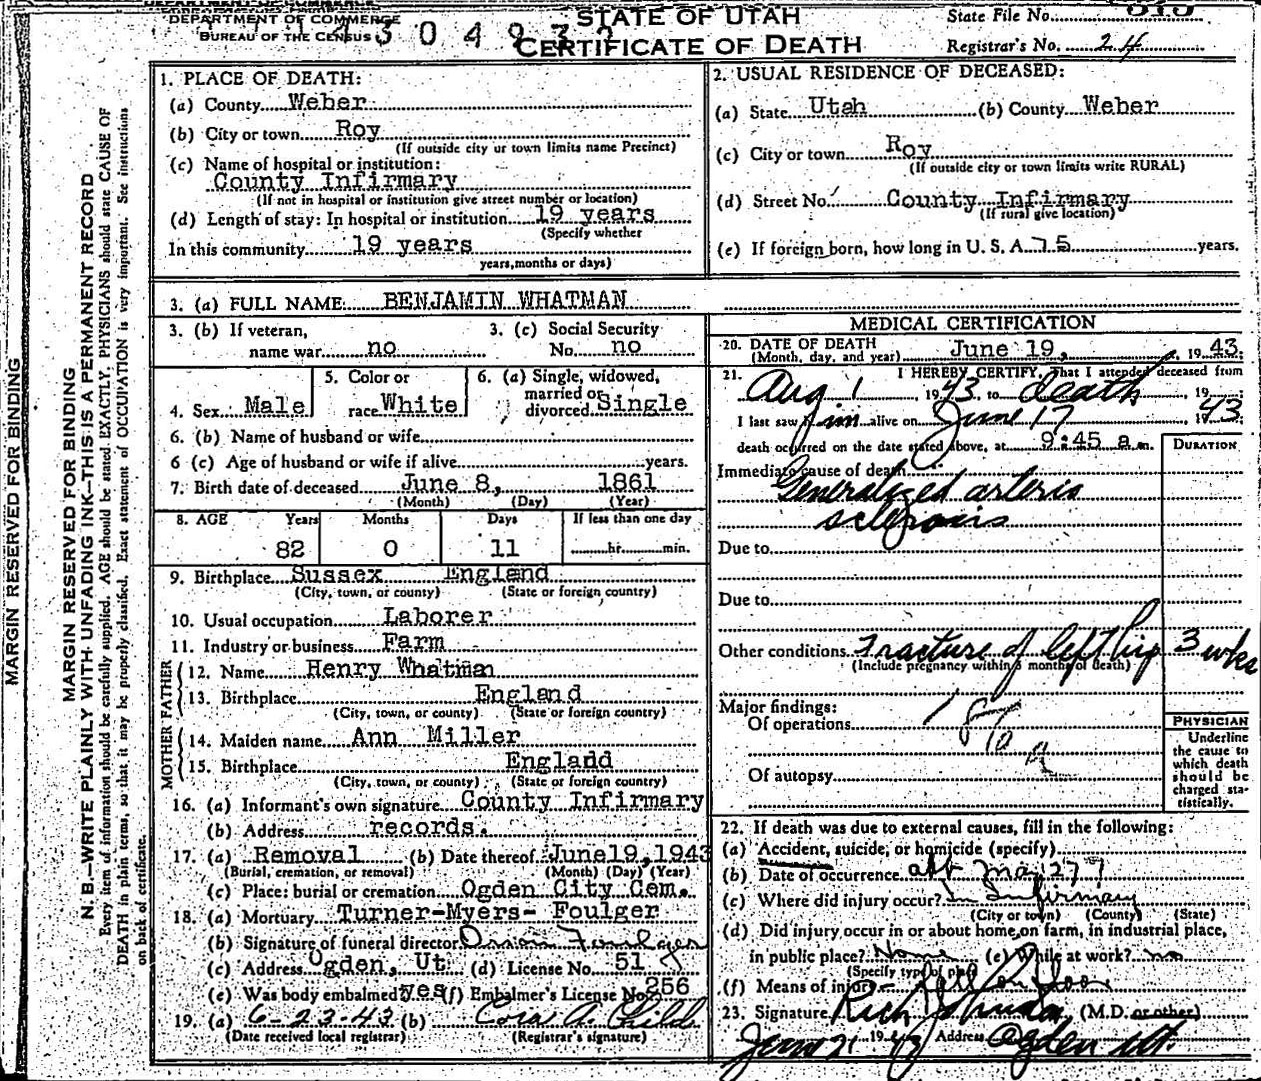 DEPARTMENT OF COMMERCE
BUREAU OF THE CENSUS
STATE OF UTAH
CERTIFICATE OF DEATH
State File No.
Registrar's No. 24
MARGIN RESERVED FOR BINDING
MARGIN RESERVED FOR BINDING
N. B.—WRITE PLAINLY WITH UNFADING INK—THIS IS A PERMANENT RECORD
Every item of information should be carefully supplied. AGE should be stated EXACTLY. PHYSICIANS should state CAUSE OF
DEATH in plain terms, so that it may be properly classified. Exact statement of OCCUPATION is very important. See instructions
on back of certificate.
1. PLACE OF DEATH:
(a) County Weber
(b) City or town Roy
(If outside city or town limits name Precinct)
(c) Name of hospital or institution:
County Infirmary
(If not in hospital or institution give street number or location)
(d) Length of stay: In hospital or institution 19 years
(Specify whether
In this community 19 years
years, months or days)
2. USUAL RESIDENCE OF DECEASED:
(a) State Utah (b) County Weber
(c) City or town Roy
(If outside city or town limits write RURAL)
(d) Street No. County Infirmary
(If rural give location)
(e) If foreign born, how long in U. S. A. 75 years.
3. (a) FULL NAME: BENJAMIN WHATMAN
3. (b) If veteran,
name war no
3. (c) Social Security
No. no
4. Sex Male
5. Color or
race White
6. (a) Single, widowed,
married or
divorced Single
6. (b) Name of husband or wife
6 (c) Age of husband or wife if alive years.
7. Birth date of deceased June 8, 1861
(Month) (Day) (Year)
8. AGE Years Months Days If less than one day
82 0 11 hr. min.
9. Birthplace Sussex England
(City, town, or county) (State or foreign country)
10. Usual occupation Laborer
11. Industry or business Farm
FATHER
12. Name Henry Whatman
13. Birthplace England
(City, town, or county) (State or foreign country)
MOTHER
14. Maiden name Ann Miller
15. Birthplace England
(City, town, or county) (State or foreign country)
16. (a) Informant's own signature County Infirmary
(b) Address records.
17. (a) Removal (b) Date thereof June 19, 1943
(Burial, cremation, or removal) (Month) (Day) (Year)
(c) Place: burial or cremation Ogden City Cem.
18. (a) Mortuary Turner-Myers- Foulger
(b) Signature of funeral director
(c) Address Ogden, Ut (d) License No. 51
(e) Was body embalmed? yes (f) Embalmer's License No. 256
19. (a) 6-23-43 (b) Cora A. Child
(Date received local registrar) (Registrar's signature)
MEDICAL CERTIFICATION
20. DATE OF DEATH
(Month, day, and year) June 19, 1943.
21. I HEREBY CERTIFY, That I attended deceased from
Aug 1, 1943 to death, 19
I last saw him alive on June 17, 1943
death occurred on the date stated above, at 9:45 a m.
DURATION
Immediate cause of death
Generalized arterio
sclerosis
Due to
Due to
Other conditions Fracture of left hip 3 wks
(Include pregnancy within 3 months of death)
Major findings:
Of operations
Of autopsy
PHYSICIAN
Underline
the cause to
which death
should be
charged sta-
tistically.
22. If death was due to external causes, fill in the following:
(a) Accident, suicide, or homicide (specify)
(b) Date of occurrence abt May 27
(c) Where did injury occur? In Infirmary
(City or town) (County) (State)
(d) Did injury occur in or about home, on farm, in industrial place,
in public place? Home (e) While at work? no
(Specify type of place)
(f) Means of injury Fell on floor
23. Signature Rich Johnston, (M.D. or other)
June 21 1943 Address Ogden Ut.